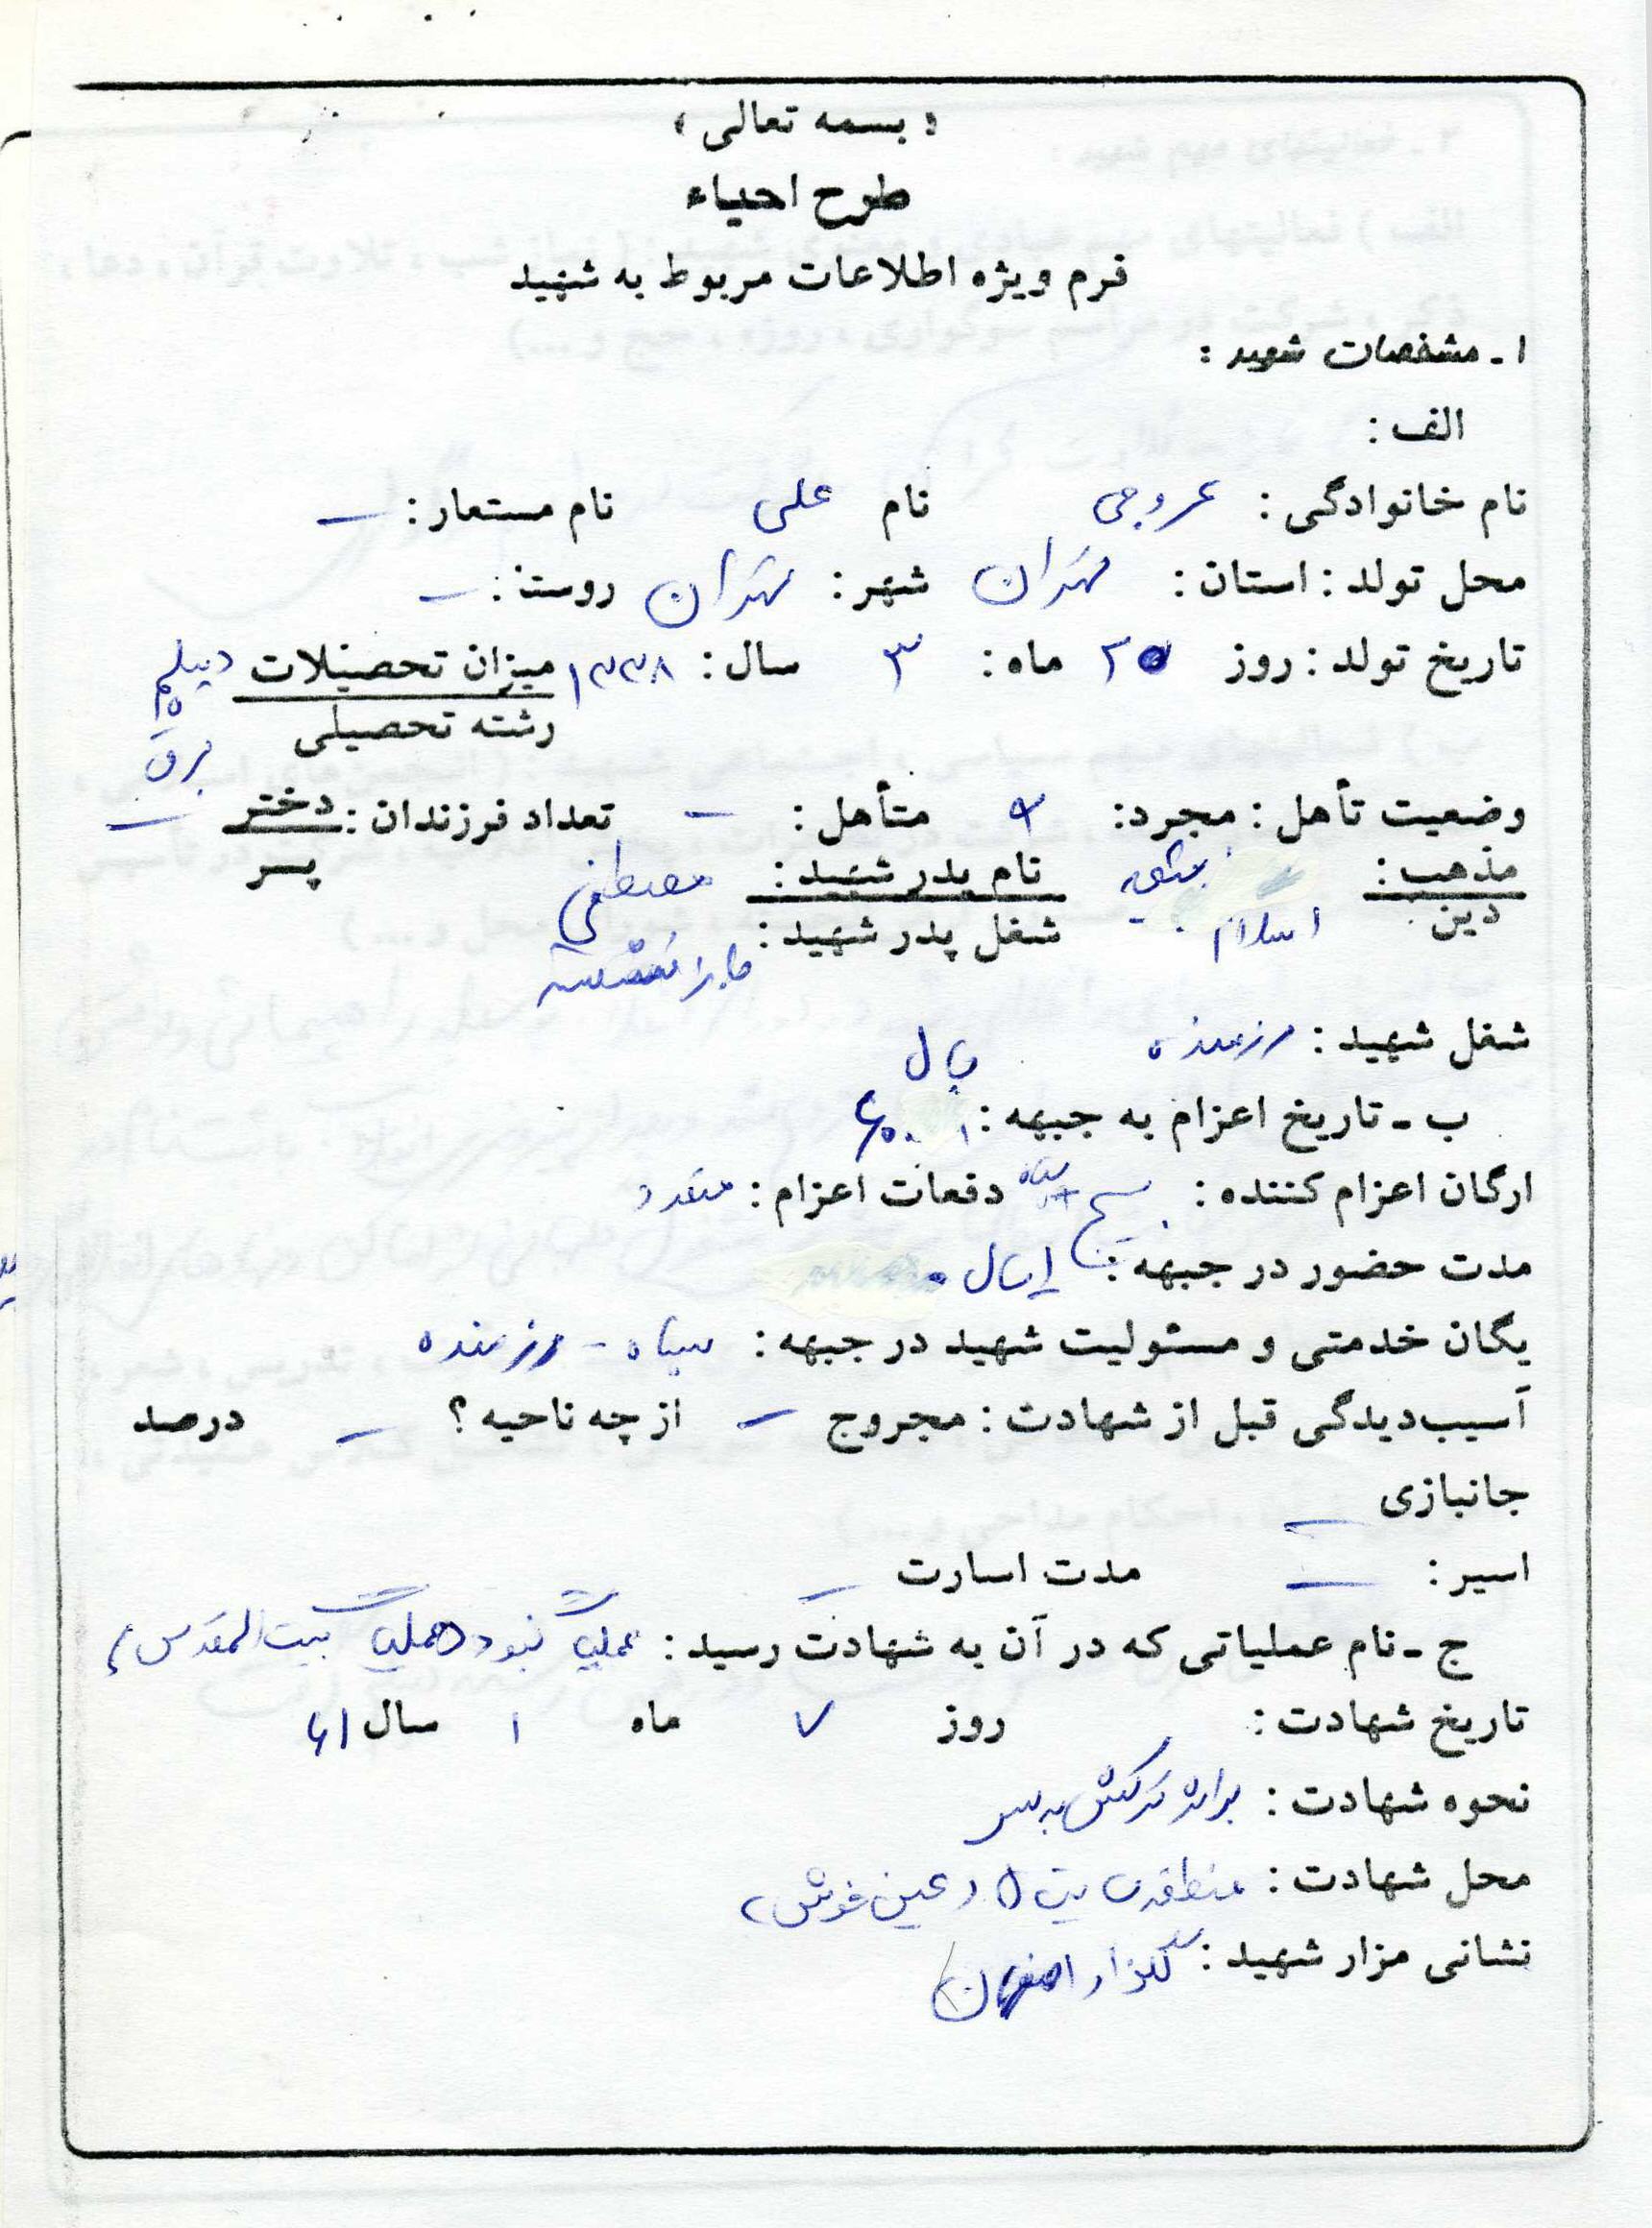 « بسمه تعالی »
طرح احیاء
فرم ویژه اطلاعات مربوط به شهید
۱ ـ مشخصات شهید :
الف :
نام خانوادگی : عروجی نام علی نام مستعار : —
محل تولد : استان : تهران شهر : تهران روستا : —
تاریخ تولد : روز ۲۵ ماه : ۳ سال : ۱۳۳۸ میزان تحصیلات دیپلم
رشته تحصیلی برق
وضعیت تأهل : مجرد : متأهل : — تعداد فرزندان : دختر —
پسر
مذهب : شیعه نام پدر شهید : مصطفی
دین اسلام شغل پدر شهید :
شغل شهید : رزمنده
ب ـ تاریخ اعزام به جبهه : سال ۶۰
ارگان اعزام کننده : بسیج + سپاه دفعات اعزام : متعدد
مدت حضور در جبهه : ۱ سال
یگان خدمتی و مسئولیت شهید در جبهه : سپاه - رزمنده
آسیب‌دیدگی قبل از شهادت : مجروح — از چه ناحیه ؟ — درصد
جانبازی —
اسیر : — مدت اسارت —
ج ـ نام عملیاتی که در آن به شهادت رسید : عملیات نبود (عملیات بیت المقدس)
تاریخ شهادت : روز ۷ ماه ۱ سال ۶۱
نحوه شهادت : ترکش به سر
محل شهادت : منطقه سایت ۵ (عین خوش)
نشانی مزار شهید : گلزار اصفهان